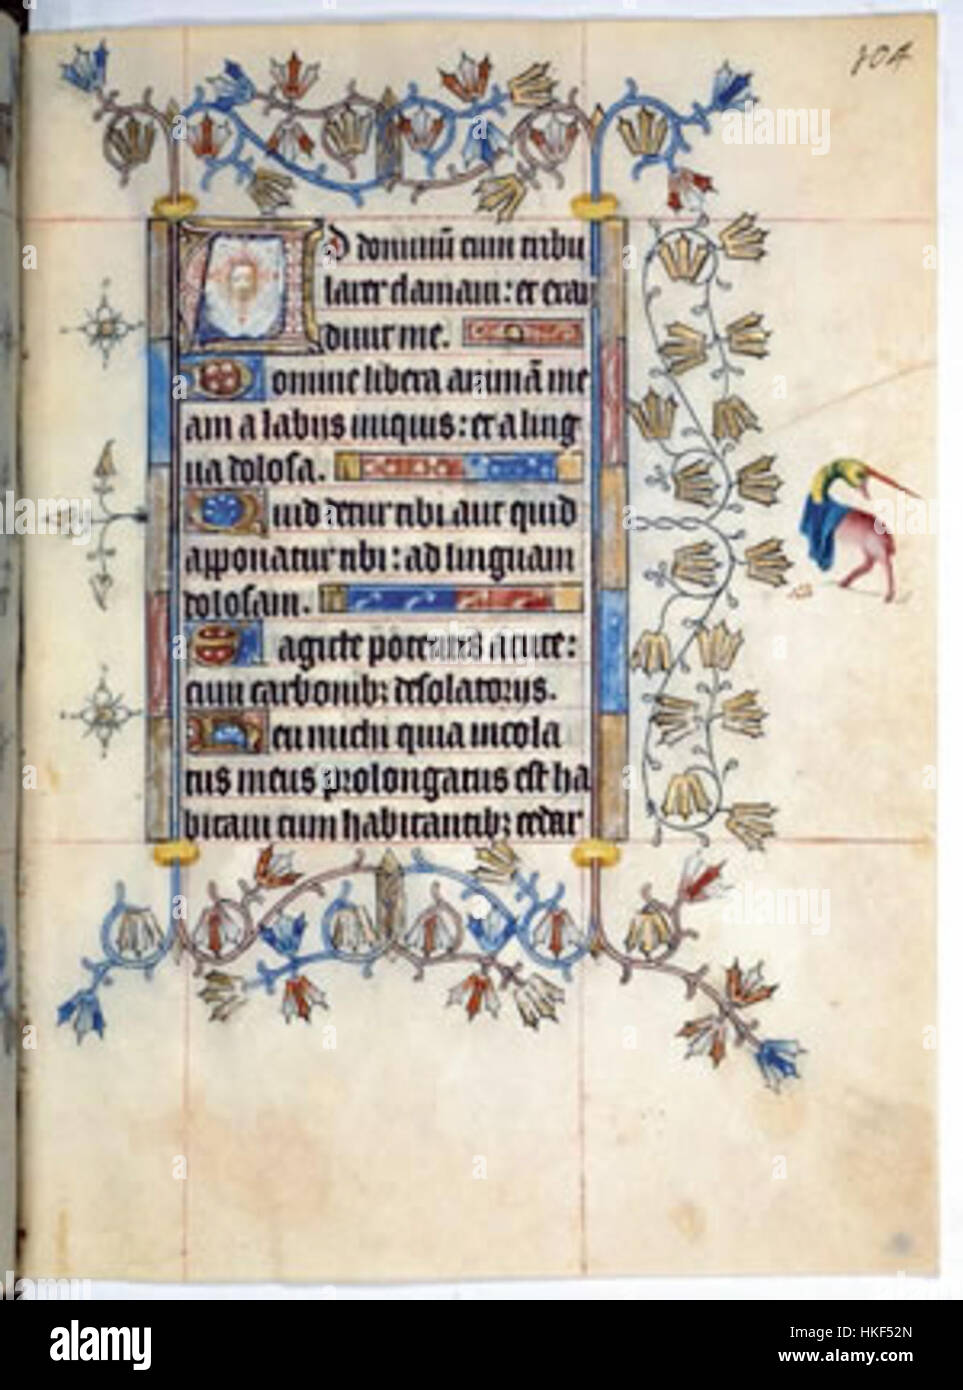 104
Ad dominū cum tribu
larer clamaui: et exau
diuit me.
Domine libera animā me
am a labijs iniquis: et a ling
ua dolosa.
Quid detur tibi aut quid
apponatur tibi: ad linguam
dolosam.
Sagicte potentis acute:
cum carbonibꝫ desolatorijs.
Heu michi quia incola
tus meus prolongatus est ha
bitaui cum habitantibꝫ cedar
alamy
alamy
Image ID: HKF52N
www.alamy.com